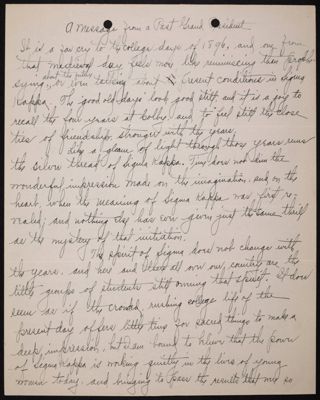 A message from a Past Grand President.
It is a far cry to the college days of 1896, and one from
that mediaeval day feels more like reminiscing than prophe-
about the future
sying, or even talking about present conditions in Sigma
Kappa. The "good old days" look good still, and it is a joy to
recall the four years at Colby, and to feel still the close
ties of friendship stronger with the years.
Like a gleam of light through those years runs
the silver thread of Sigma Kappa. Time does not dim the
wonderful impression made on the imagination, and on the
heart, when the meaning of Sigma Kappa was first re-
vealed; and nothing else has ever given just the same thrill
as the mystery of that initiation.
The spirit of Sigma does not change with
the years, and here and there all over our country are the
little groups of students still owning that spirit. It does
seem as if the crowded, rushing college life of the
present day offers little time for sacred things to make a
deep impression, but I am bound to believe that the power
of Sigma Kappa is working quietly in the lives of young
women today, and bringing to pass the results that mean so